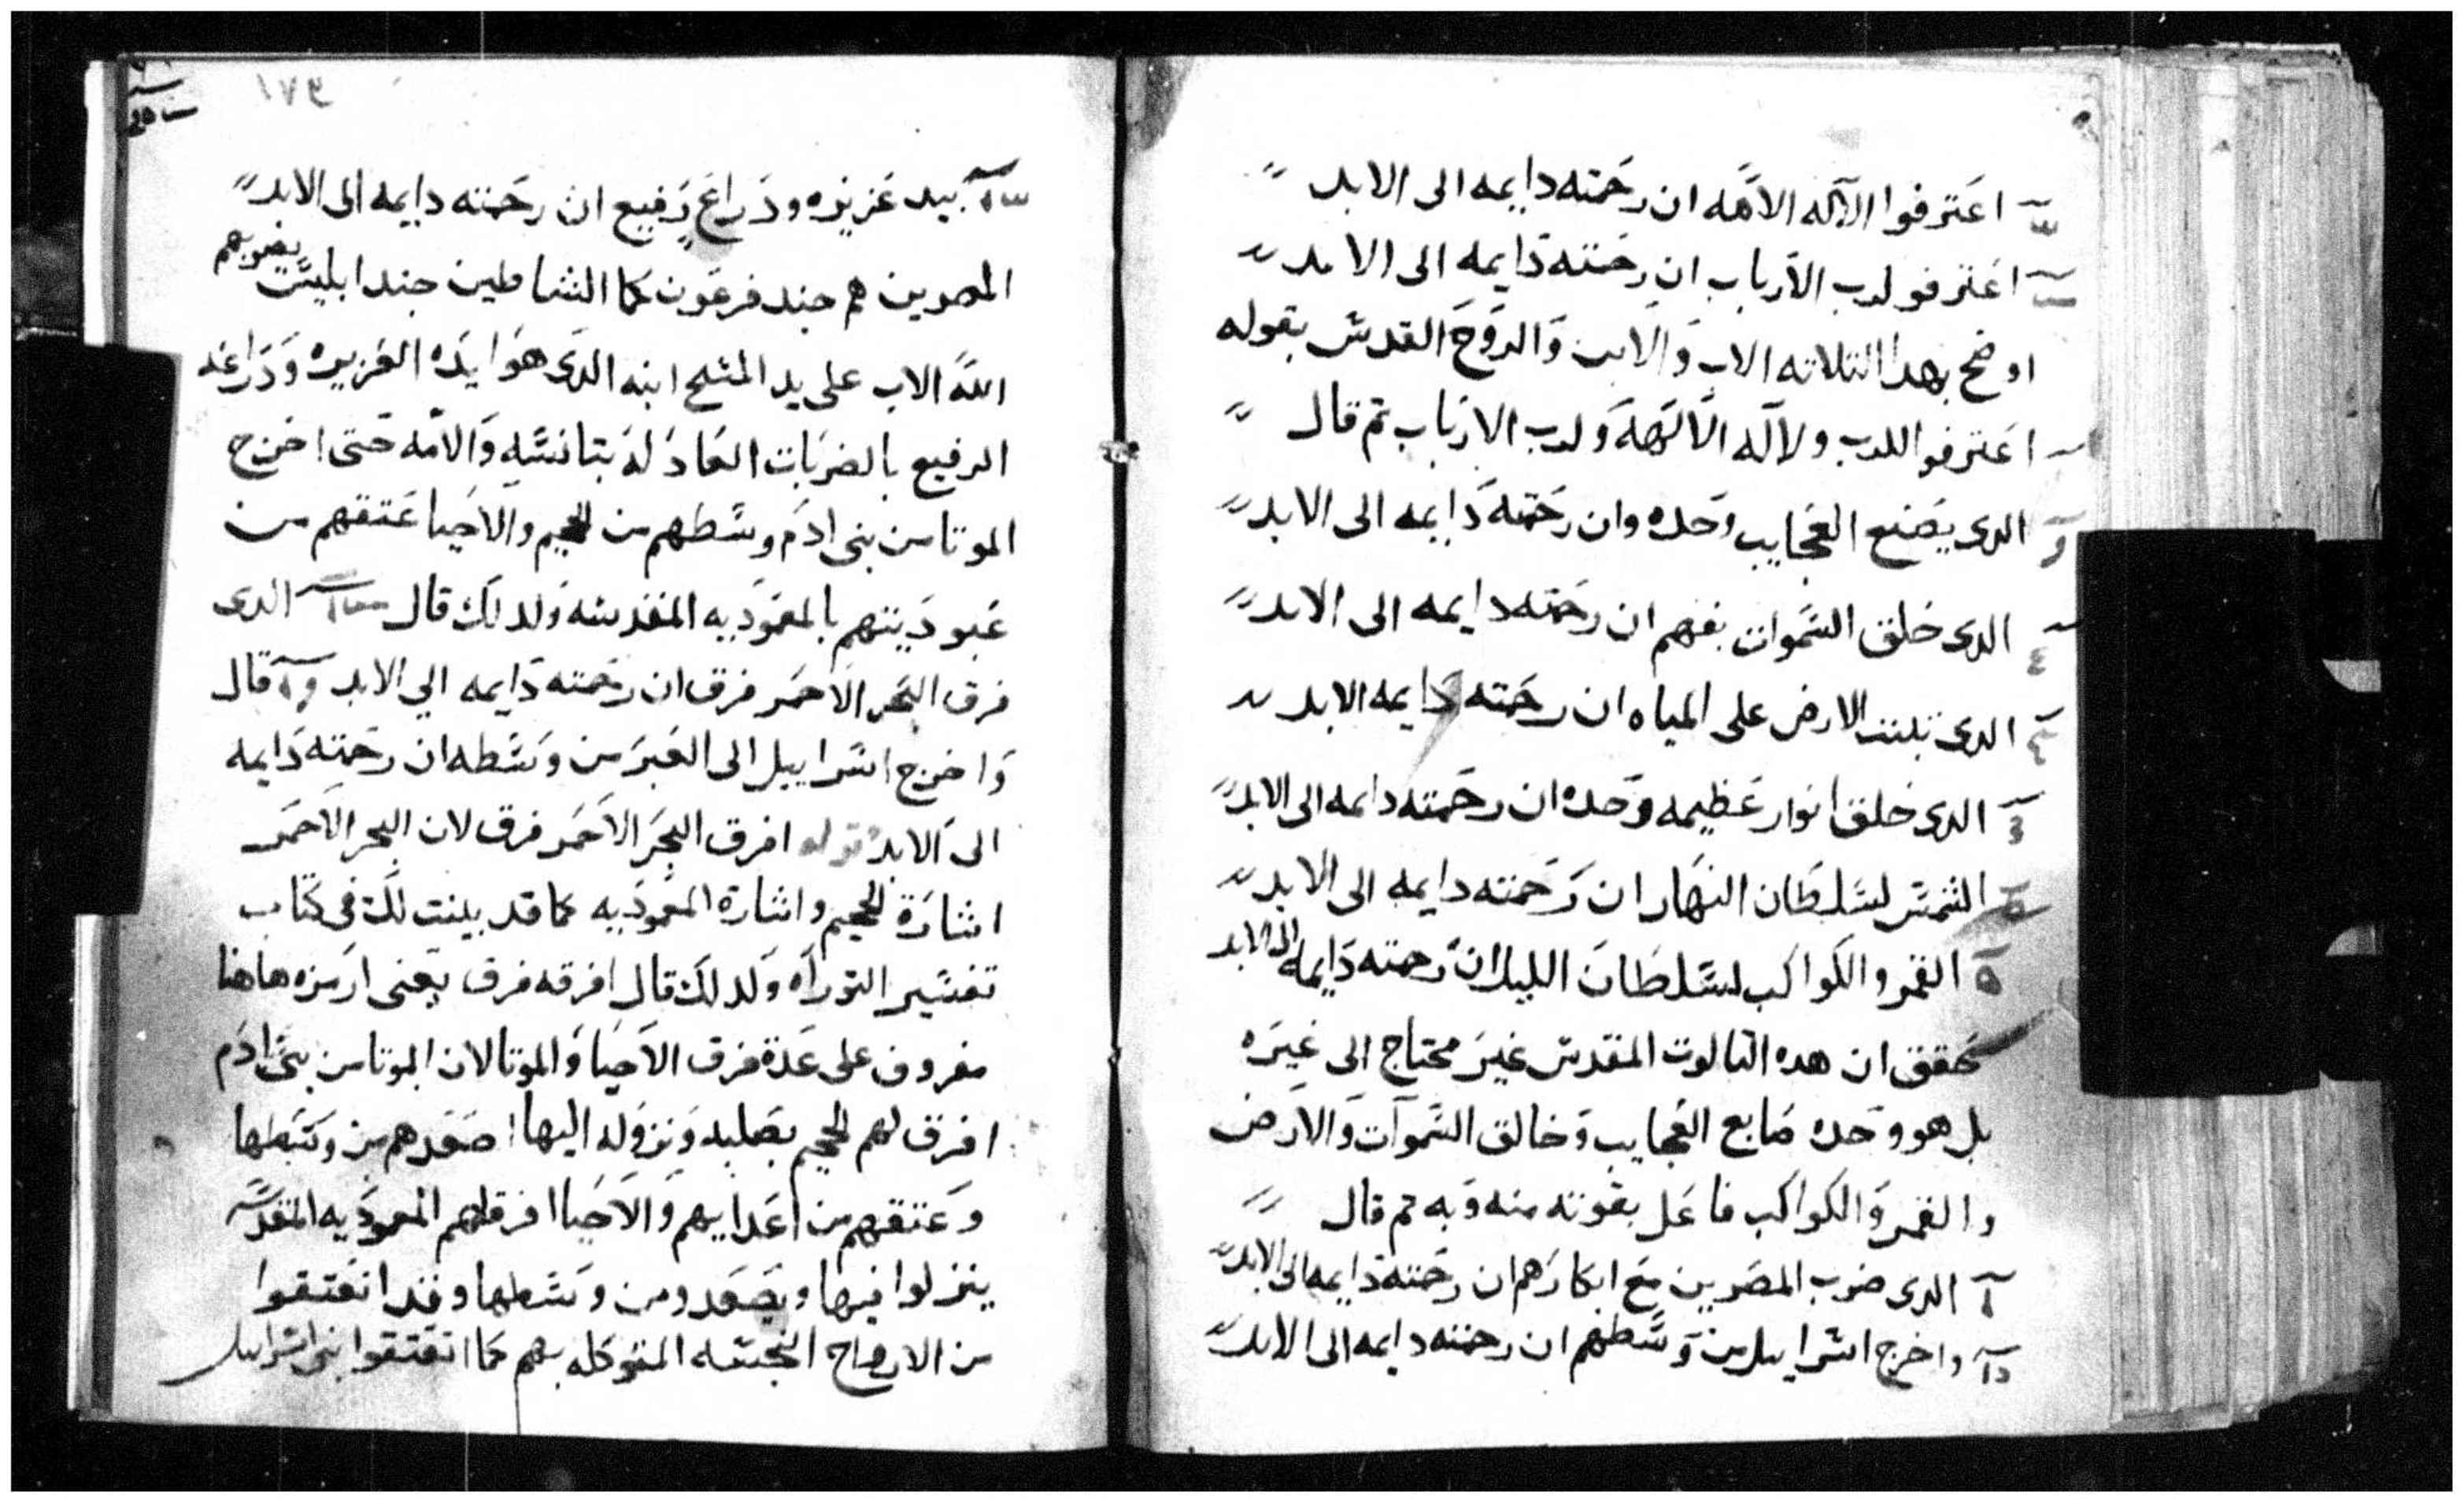 اعترفوا الآله الالهه ان رحمته دايمه الى الابد
اعترفو لرب الارباب ان رحمته دايمه الى الابد
اوضح بهدا التلاته الاب والابن والروح القدس بقوله
اعترفوا للرب ولاله الالهه ولرب الارباب تم قال
الدى يصنع العجايب وحده وان رحمته دايمه الى الابد
الدى خلق السموات بفهم ان رحمته دايمه الى الابد
الدى تبت الارض على المياه ان رحمته دايمه الابد
الدى خلق انوار عظيمه وحده ان رحمته دايمه الى الابد
الشمس لسلطان النهار ان رحمته دايمه الى الابد
القمر والكواكب لسلطان الليل ان رحمته دايمه الى الابد
تحقق ان هده التالوت المقدس غير محتاج الى غيره
بل هو وحده صانع العجايب وخالق السموات والارض
والقمر والكواكب فاعل بقوته منه وبه تم قال
الدى ضرب المصريين مع ابكارهم ان رحمته دايمه الى الابد
واخرج اسراييل من وسطهم ان رحمته دايمه الى الابد
١٧٣
بيد عزيزه ودراع رفيع ان رحمته دايمه الى الابد
المصريين هم جند فرعون كما الشياطين جند ابليس يضربهم
الله الاب على يد المسيح ابنه الدى هوا يده العزيزه ودراعه
الرفيع بالضربات العادله بتانسه والامه حتى اخرج
الموتا من بنى ادم وسطهم من الجحيم والاحيا عتقهم من
عبوديتهم بالمعموديه المقدسه ولدلك قال الدى
فرق البحر الاحمر فرق ان رحمته دايمه الي الابد قال
واخرج اسراييل الى العبر من وسطه ان رحمته دايمه
الى الابد قوله افرق البحر الاحمر فرق لان البحر الاحمر
اشارة للجحيم واشارة المعموديه كما قد بينت لك فى كتاب
تفسير التوراه ولدلك قال افرقه فرق يعنى ارمزه هاهنا
مفروق على عدة فرق الاحيا والموتا لان الموتا من بنى ادم
افرق لهم الجحيم بصليبه ونزوله اليها اصعدهم من وسطها
وعتقهم من اعداييهم والاحيا افرقلهم المعموديه المقدسه
ينزلوا فيها ويصعدو من وسطها وقد انعتقوا
من الارواح النجسه المتوكله بهم كما انعتقوا بنى اسراييل